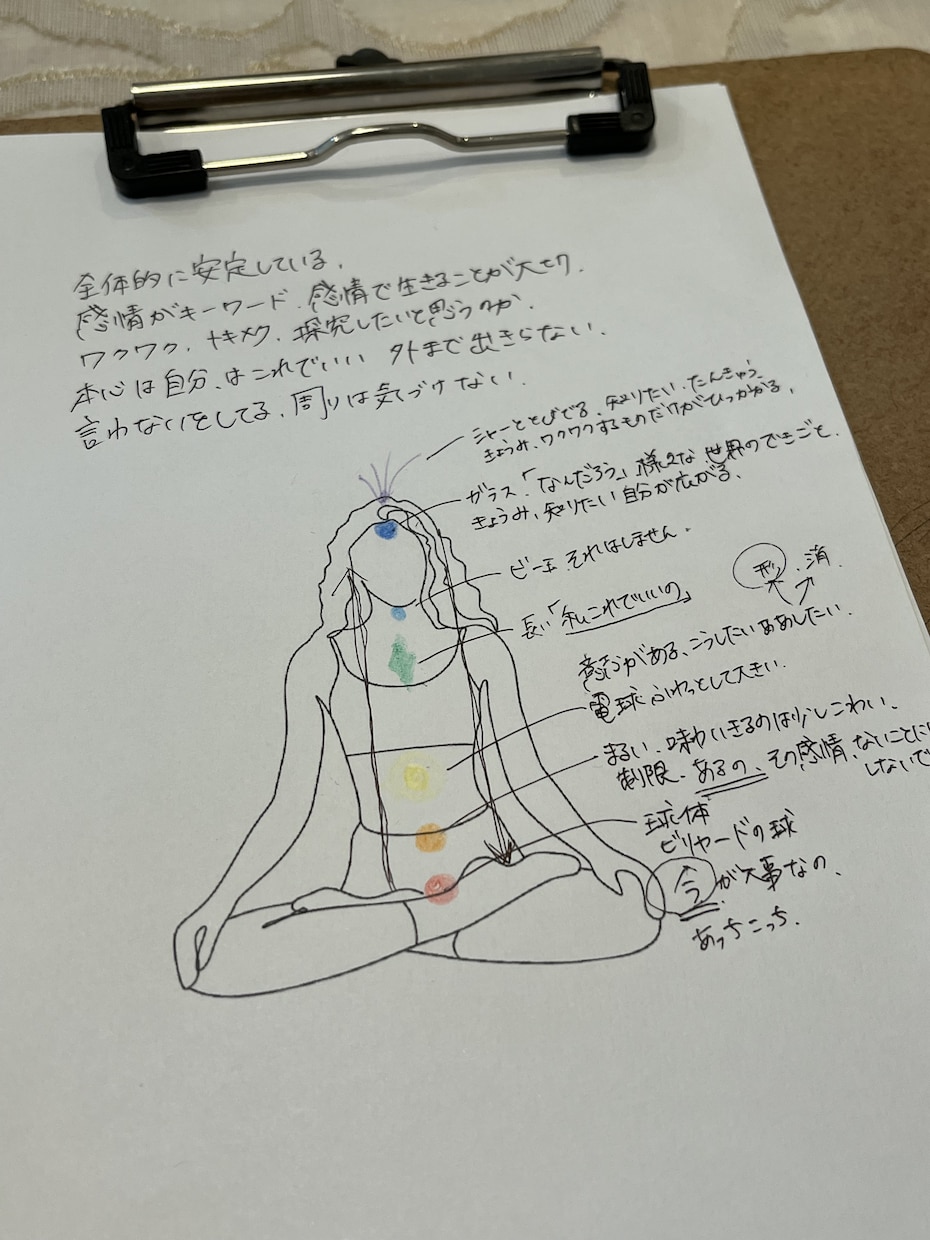 全体的に安定している.
感情がキーワード. 感情で生きることが大切.
ワクワク. トキメク. 探究したいと思うのか.
本心は自分、はこれでいい 外まで出きらない.
言わないをしてる. 周りは気づけない.
シャーととびでる. 知りたい. たんきゅう.
きょうみ. ワクワクするものだけがひっかかる.
ガラス.「なんだろう」様々な世界のできごと.
きょうみ. 知りたい 自分が広がる.
ビー玉 それはしません.
長い「私これでいいの」
消.
意志がある、こうしたいああしたい.
電球 ふわっとして大きい.
まるい. 味わいきるのは少しこわい.
制限. あるの、その感情、ないことに
しないで
球体
ビリヤードの球
今が大事なの.
あっちこっち.